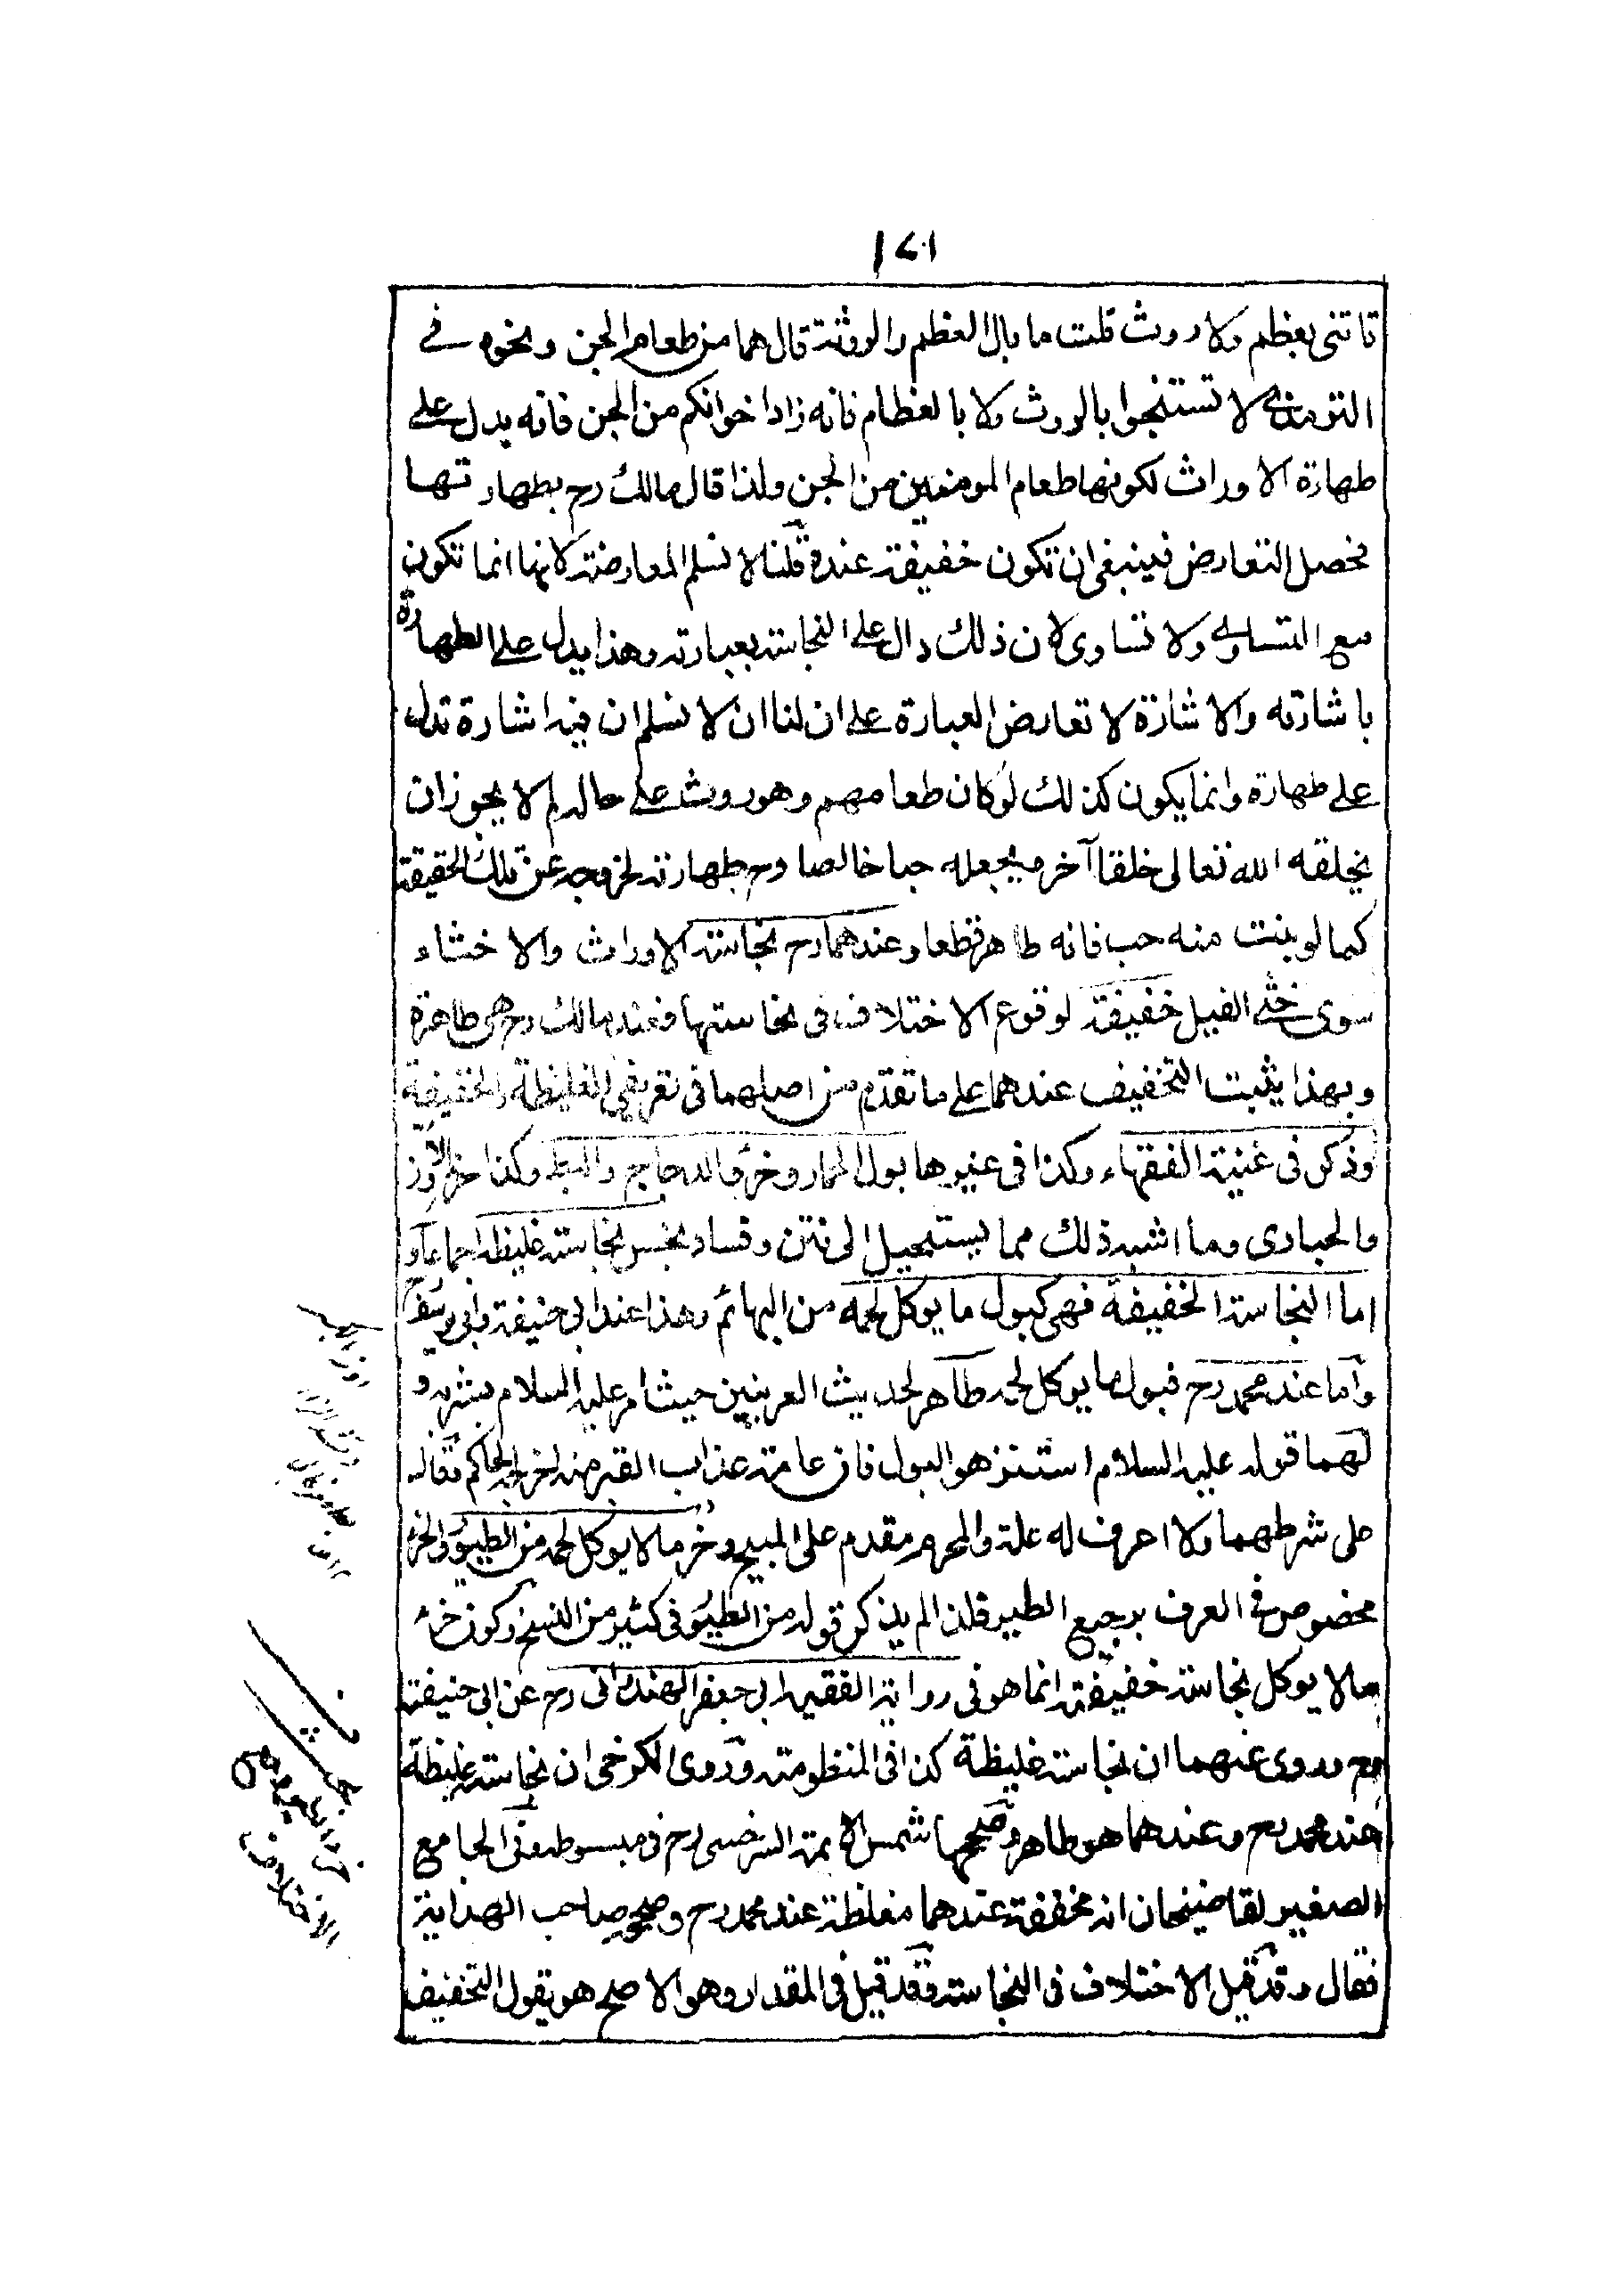 ١٧١
تاتنى بعظم ولا روث قلت ما بال العظم والروثة قال هما من طعام الجن ونحوه فے
الترمذى لا تستنجوا بالروث ولا بالعظام فانه زاد اخوانكم من الجن فانه يدل على
طهارة الاوراث لكونها طعام المومنين من الجن ولذا قال مالك رح بطهارتها
فحصل التعارض فينبغى ان تكون خفيفة عنده قلنا لا نسلم المعارضة لانها انما تكون
مع التساوى ولا تساوى لان ذلك دال على النجاسة بعبارته وهذا يدل على الطهارة
باشارته والاشارة لا تعارض العبارة على ان لنا ان لا نسلم ان فيه اشارة تدل
على طهارة وانما يكون كذلك لو كان طعامهم وهو روث على حاله لم لا يجوز ان
يخلقه الله تعالى خلقا آخر فيجعله حبا خالصا وح طهارته لخروجه عن تلك الحقيقة
كما لو ينت منه حب فانه طاهر قطعا وعندهما رح نجاسة الاوراث والاخثاء
سوى خثى الفيل خفيفة لوقوع الاختلاف فى نجاستها فعند مالك رح هى طاهرة
وبهذا يثبت التخفيف عندهما على ما تقدم من اصلهما فى تعريفى الغليظة والخفيفة
وذكر فى غنية الفقهاء وكذا فى غيرها بول الحمار وخرؤ الدجاج والبط وكذا خرؤ الاوز
والحبارى وما اشبه ذلك مما يستحيل الى نتن وفساد نجس نجاسة غليظة اجماعا و
اما النجاسة الخفيفة فهى كبول ما يوكل لحمه من البهائم وهذا عند ابى حنيفة وابى يوسف رح
واما عند محمد رح فبول ما يوكل لحمه طاهر لحديث العرينين حيث امر عليه السلام بشربه و
لهما قوله عليه السلام استنزهوا البول فان عامة عذاب القبر منه اخرجه الحاكم فقال
على شرطهما ولا اعرف له علة والمحرم مقدم على المبيح وخرؤ ما لا يوكل لحمه من الطيور والخرؤ
مخصوص فى العرف برجيع الطير فلذا لم يذكر قوله من الطيور فى كثير من النسخ وكون خرء
ما لا يوكل نجاسة خفيفة انما هو فى رواية الفقيه ابى جعفر الهندوانى رح عن ابى حنيفة
رح وروى عنهما ان نجاسة غليظة كذا فى المنظومة وروى الكرخى ان نجاسة غليظة
عند محمد رح وعندهما هو طاهر وصححها شمس الائمة السرخسى رح فى مبسوطه وفى الجامع
الصغير لقاضيخان انه مخففة عندهما مغلظة عند محمد رح وصححه صاحب الهداية
فقال وقد قيل الاختلاف فى النجاسة وقد قيل فى المقدار وهو الاصح هو يقول التخفيف
الاختلاف